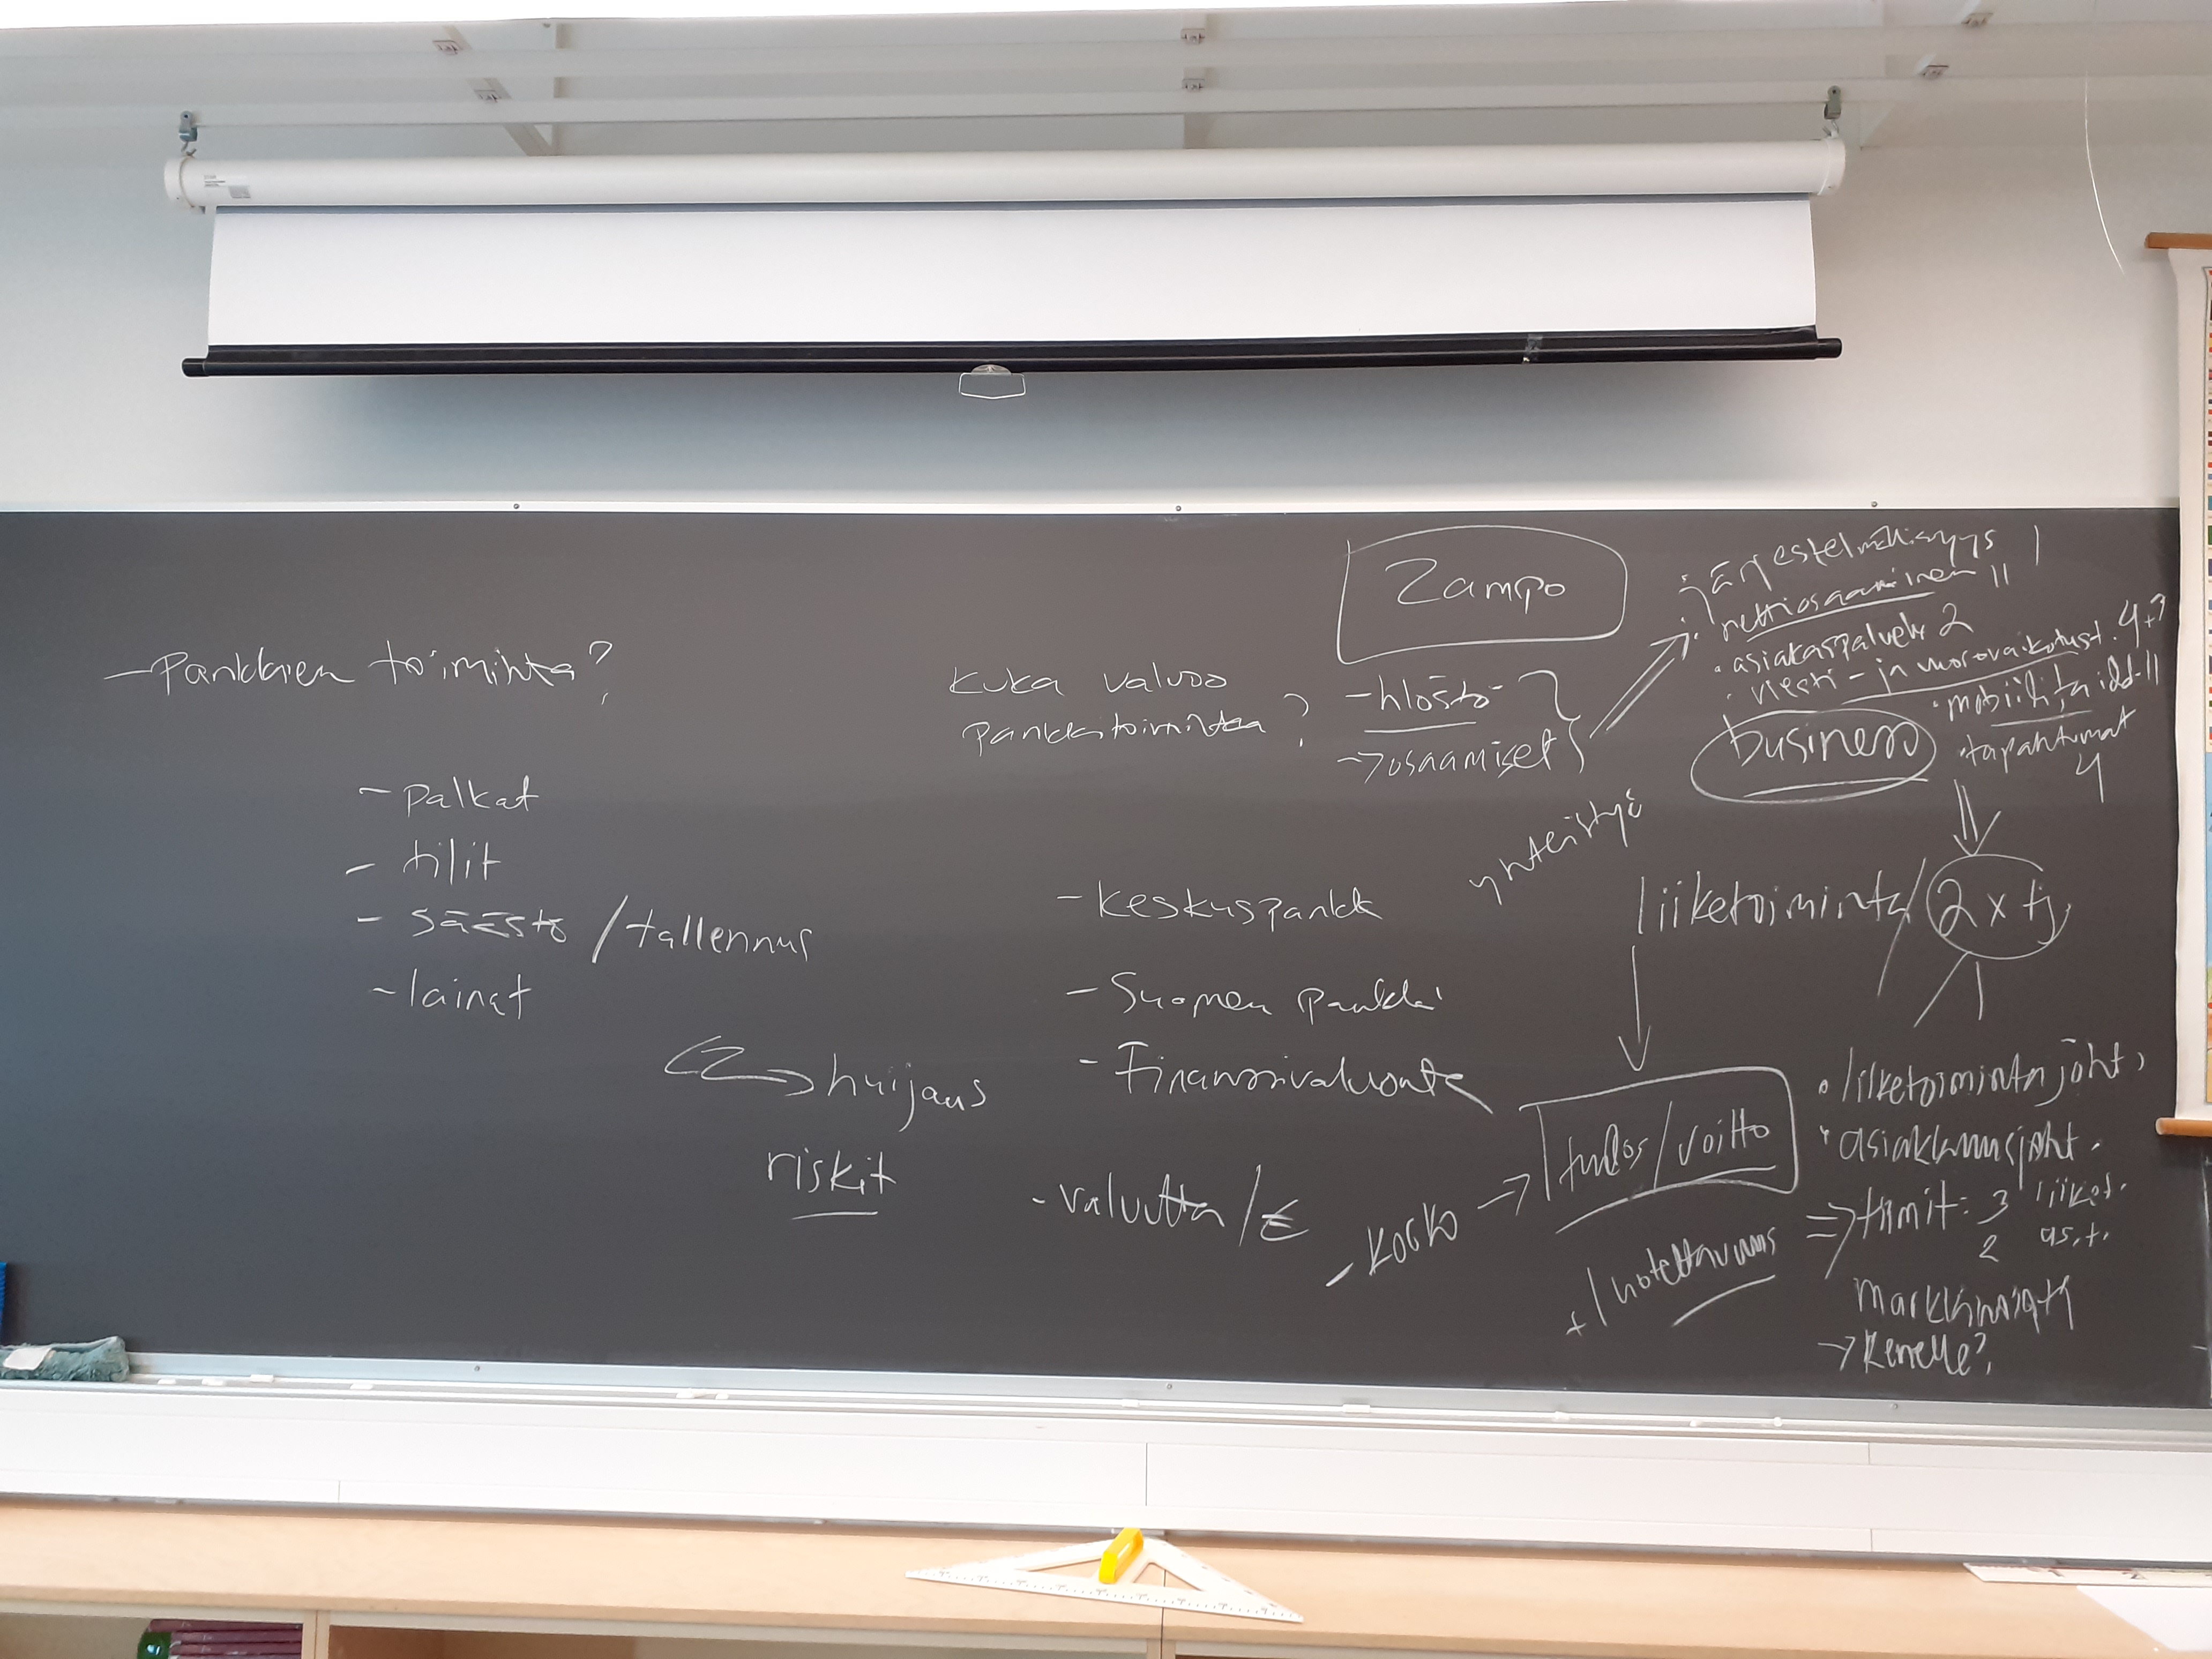 - Pankkien toiminta?
- palkat
- tilit
- säästö / tallennus
- lainat
huijaus
riskit
Kuka valvoo
pankkitoimintaa ?
- Keskuspankk
- Suomen pankki
- Finanssivalvonta
- valuutta / €
- korko →
Zampo
- hlöstö -
→ osaamiset
järjestelmällisyys |
• nettiosaaminen ||
• asiakaspalvelu 2
• viesti- ja vuorovaikutust. 4+?
• mobiili
• tapahtumat
4
business
yhteistyö
liiketoiminta / 2 x tj.
tulos / voitto
+ luotettavuus
• liiketoimintajoht.
• asiakkuusjoht.
⇒ tiimit: 3 liiket.
2 as.t.
markkinointi
→ Kenelle?